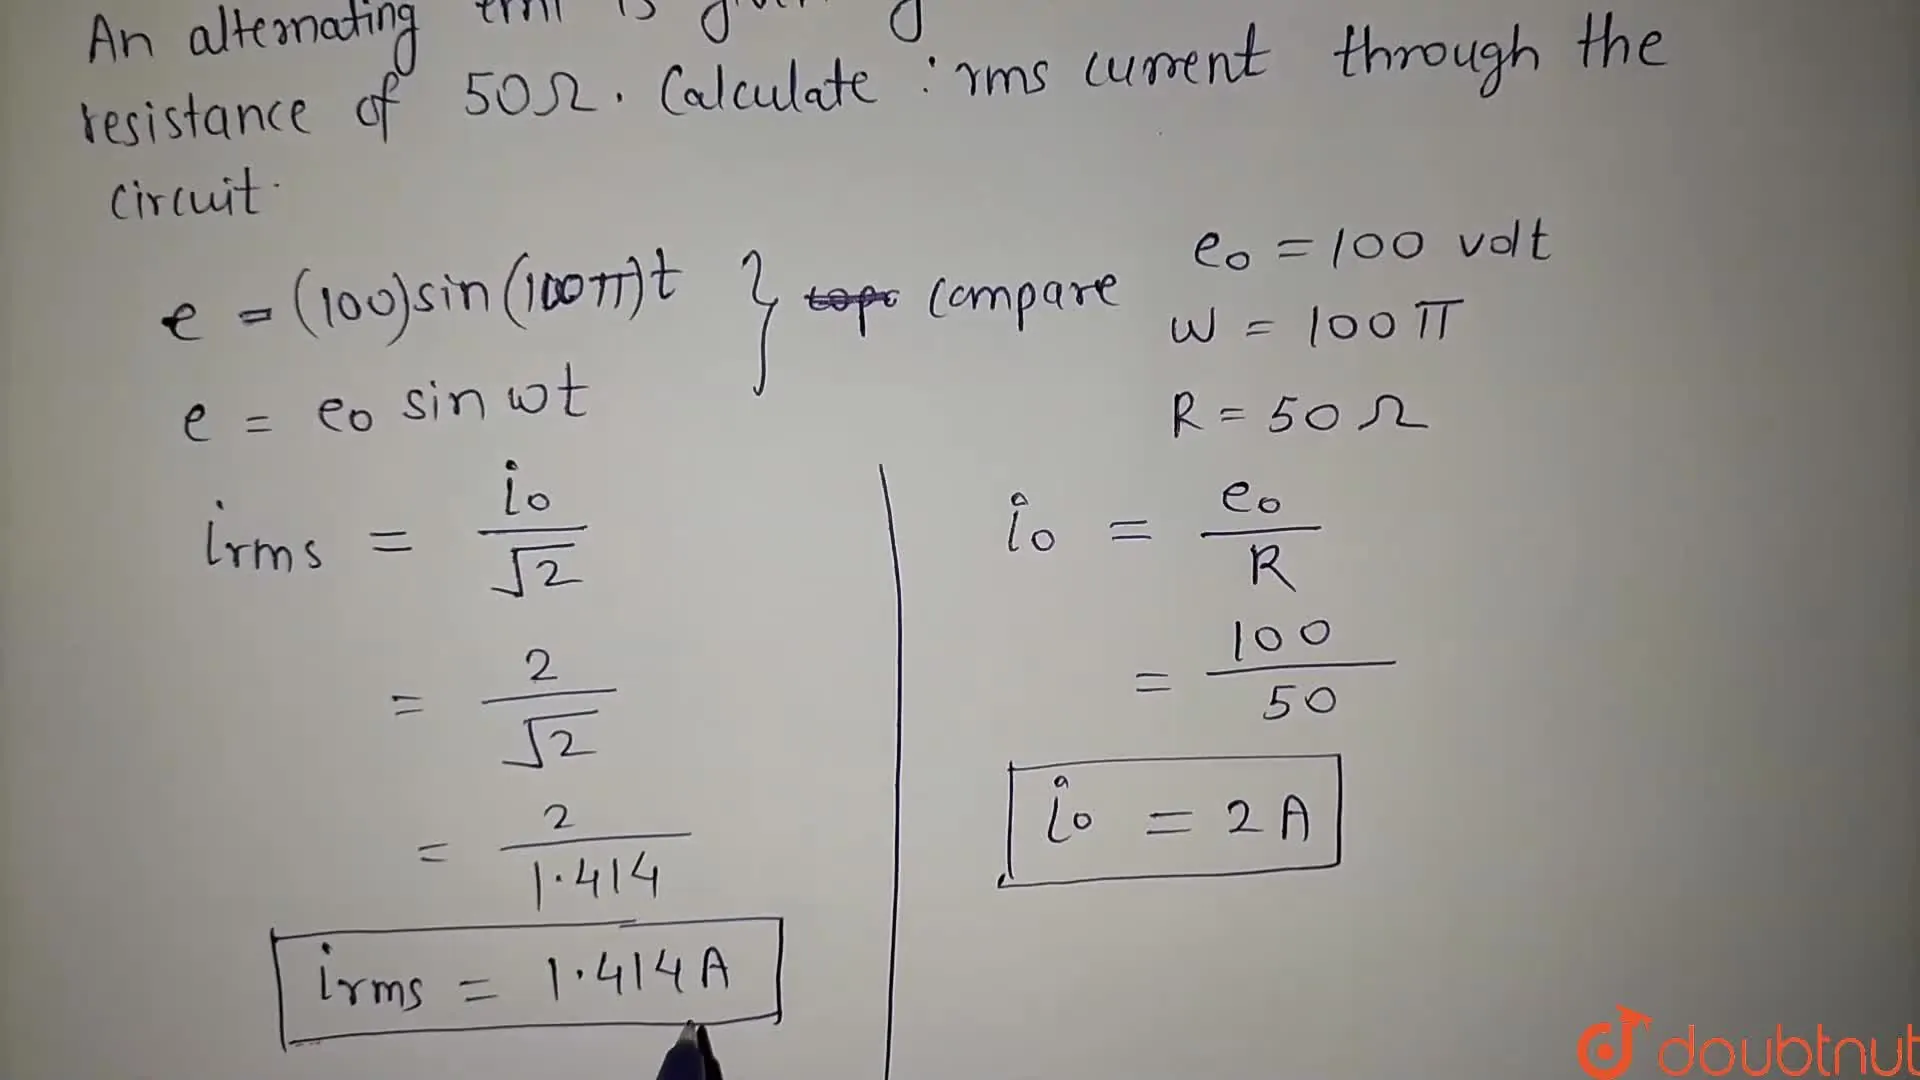 An alternating emf is given
resistance of 50Ω. Calculate : rms current through the
circuit.
e = (100)sin(100π)t } compare
e = e₀ sin wt
e₀ = 100 volt
w = 100 π
R = 50 Ω
irms = i₀/√2
= 2/√2
= 2/1.414
irms = 1.414A
i₀ = e₀/R
= 100/50
i₀ = 2A
doubtnut